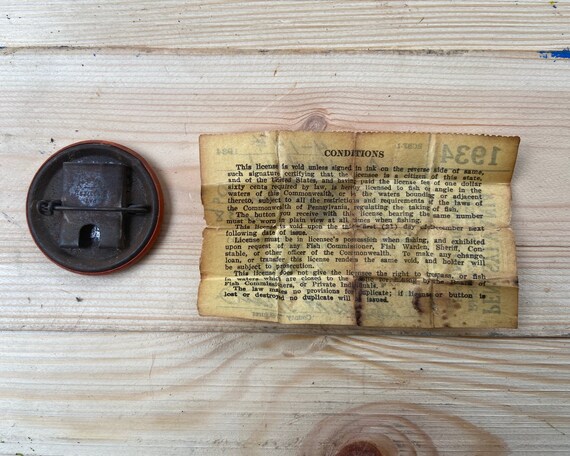 CONDITIONS
This license is void unless signed in ink on the reverse side of same,
such signature certifying that the licensee is a citizen of this state,
and of the United States, and having paid the license fee of one dollar
sixty cents required by law, is hereby licensed to fish or angle in the
waters of this Commonwealth, or in the waters bounding or adjacent
thereto, subject to all the restrictions and requirements of the laws of
the Commonwealth of Pennsylvania, regulating the taking of fish.
The button you receive with this license bearing the same number
must be worn in plain view at all times when fishing.
This license is void upon the thirty-first (31) day of December next
following date of issue.
License must be in licensee's possession when fishing, and exhibited
upon request of any Fish Commissioner, Fish Warden, Sheriff, Con-
stable, or other officer of the Commonwealth. To make any change,
loan, or transfer this license renders the same void, and holder will
be subject to prosecution.
This license does not give the licensee the right to trespass, or fish
in waters which are closed to the
Fish Commissioners, or Private Individuals.
The law makes no provisions for duplicate; if license or button is
lost or destroyed no duplicate will be issued.
1934